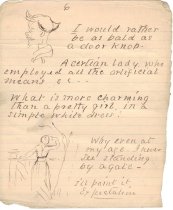 6
I would rather
be as bald as
a door knob.
A certian lady who
employed all the artificial
means etc--
What is more charming
than a pretty girl in a
simple white dress!
Why even at
my age I never
see standing
by a gate-
I'd paint it